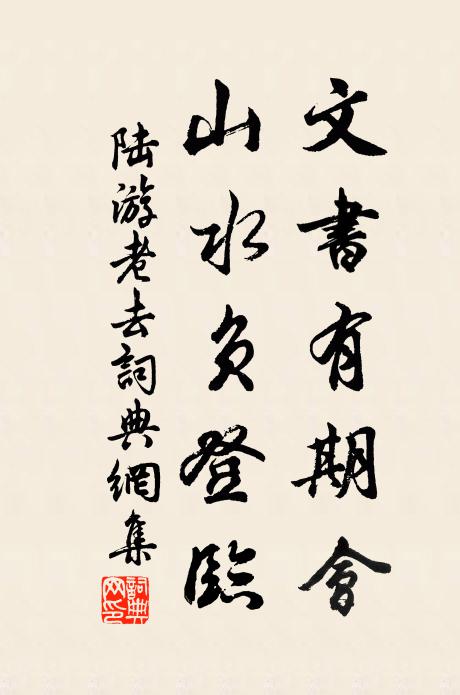 文書有期會
山水負登臨
陸游老去詞典網集
詞典网印